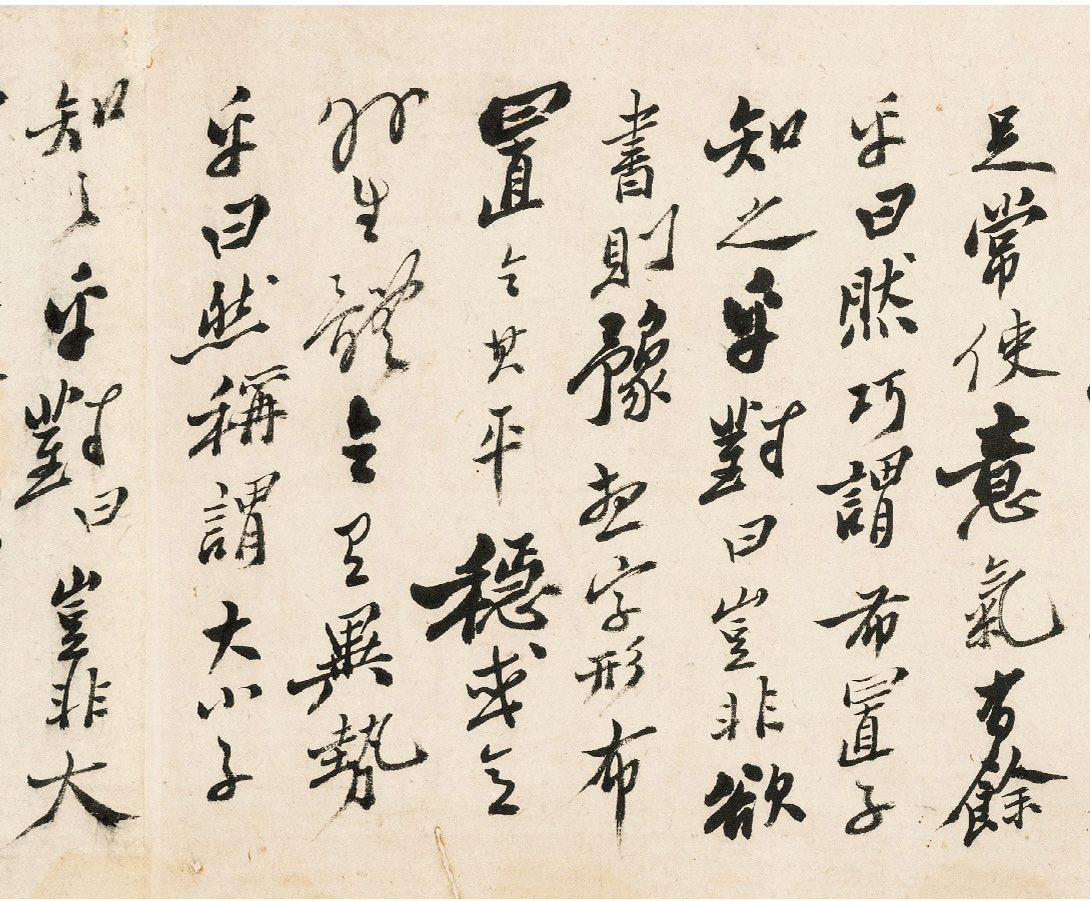 足常使意氣有餘
乎曰然巧謂布置子
知之乎對曰豈非欲
書則豫想字形布
置令其平穩或令
外生體令異勢
乎曰然稱謂大小子
知之乎對曰豈非大